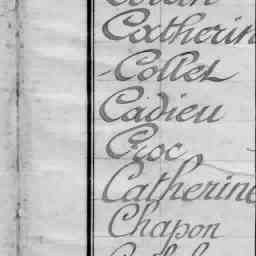 Catherin
Collet
Cadieu
Croc
Catherine
Chapon